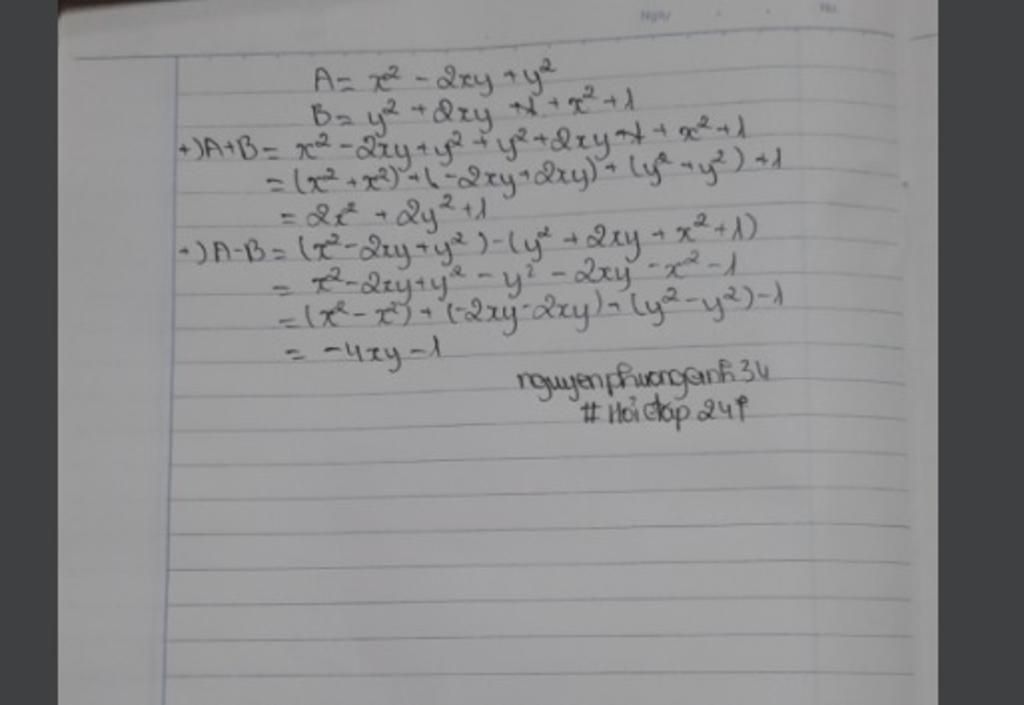 Ngày
No.
A = x² - 2xy + y²
B = y² + 2xy + x² + 1
+) A+B = x² - 2xy + y² + y² + 2xy + x² + 1
= (x² + x²) + (-2xy + 2xy) + (y² + y²) + 1
= 2x² + 2y² + 1
+) A-B = (x² - 2xy + y²) - (y² + 2xy + x² + 1)
= x² - 2xy + y² - y² - 2xy - x² - 1
= (x² - x²) + (-2xy - 2xy) + (y² - y²) - 1
= -4xy - 1
nguyenphuonganh34
# Hoidap 247